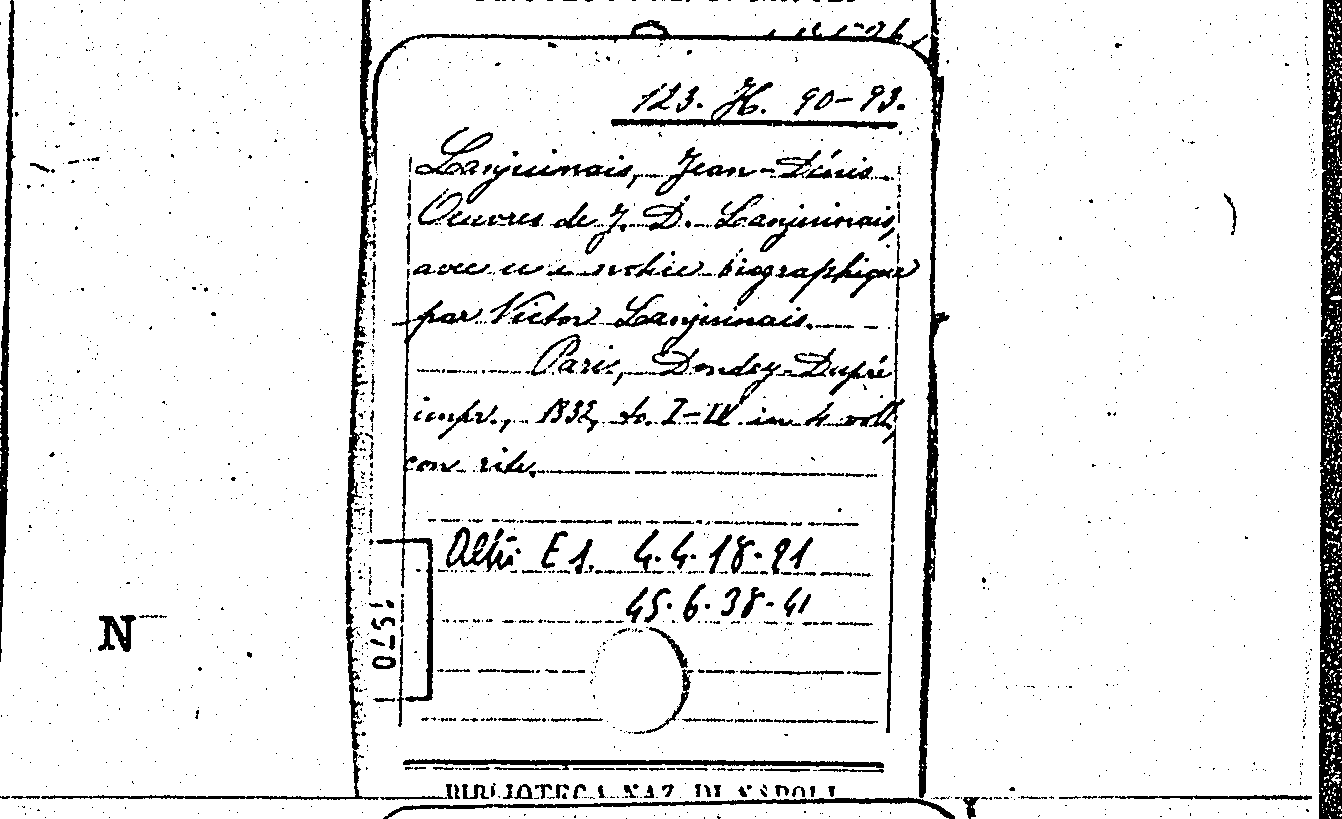 123. H. 90-93.
Lanjuinais, Jean-Dénis.
Oeuvres de J. D. Lanjuinais,
avec une notice biographique
par Victor Lanjuinais.
Paris, Dondey-Dupré
impr., 1832, to. I-IV in 4 voll.
con ritr.
Altri Es. 4.4.18-21
45.6.38-41
0751
N
BIBLIOTECA NAZ. DI NAPOLI